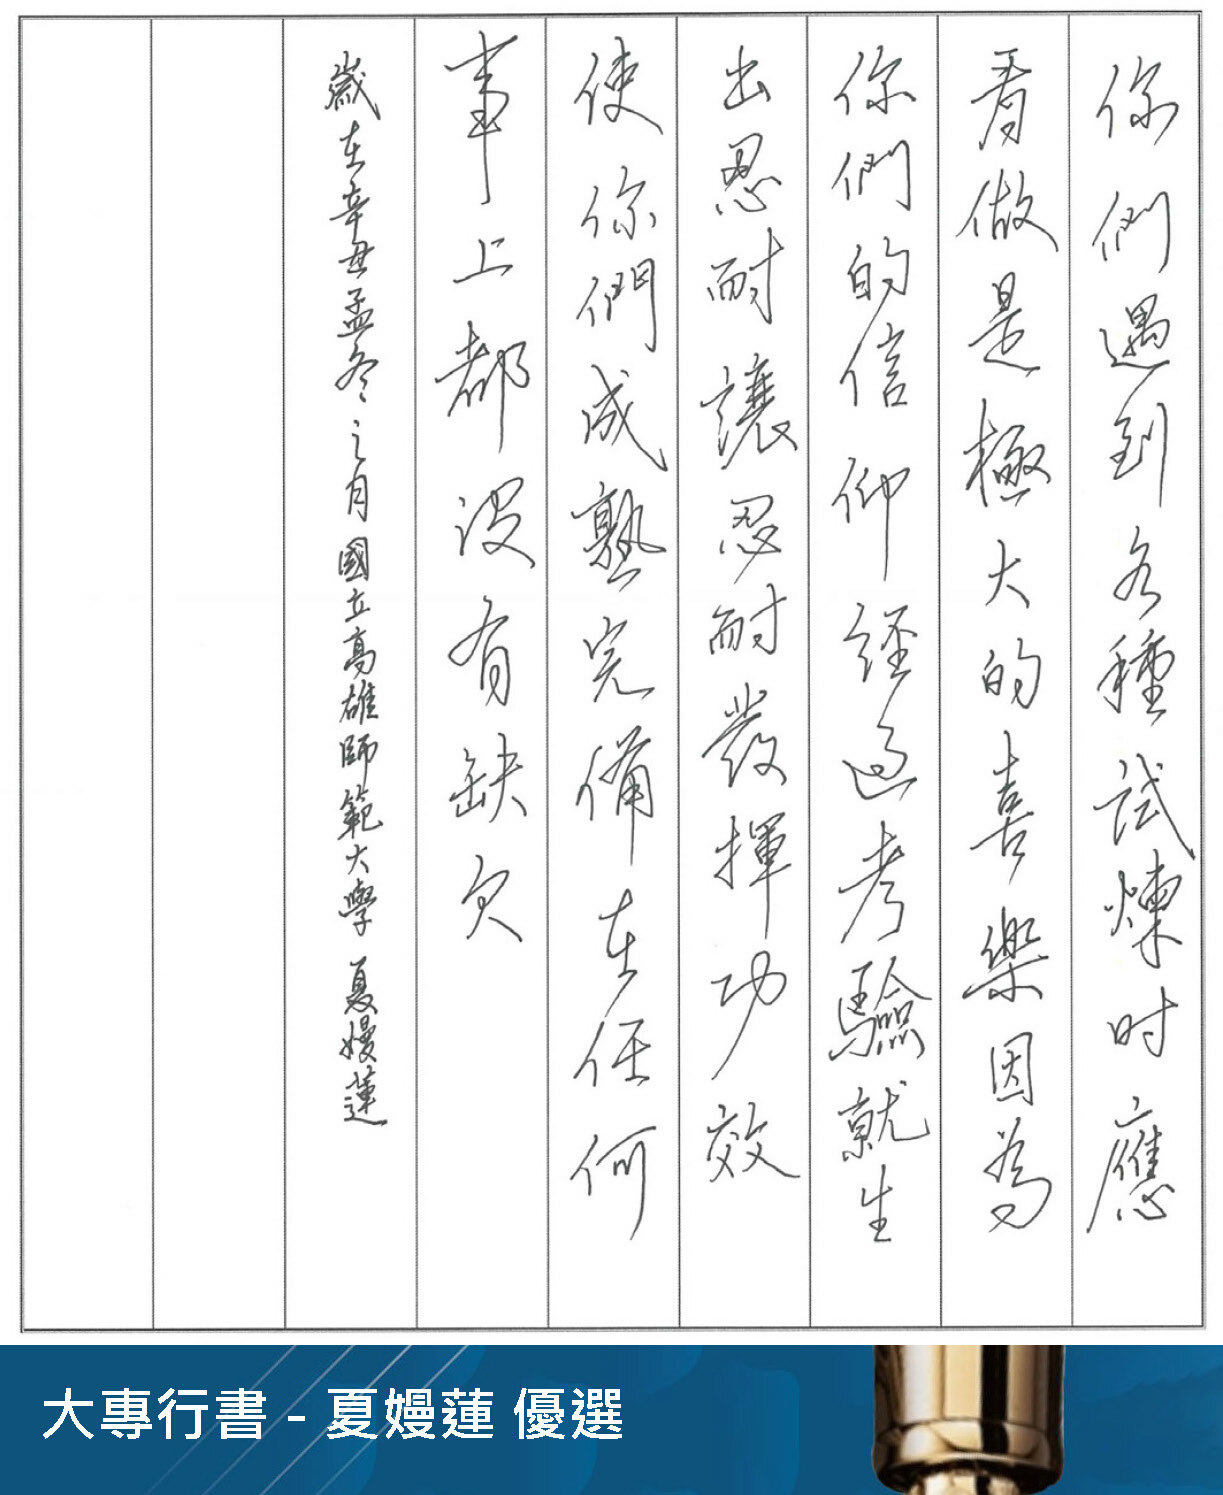 你們遇到各種試煉时應
看做是極大的喜樂因為
你們的信仰經過考驗就生
出忍耐讓忍耐發揮功效
使你們成熟完備在任何
事上都沒有缺欠
歲在辛丑孟冬之月國立高雄師範大學 夏嫚蓮
大專行書 - 夏嫚蓮 優選